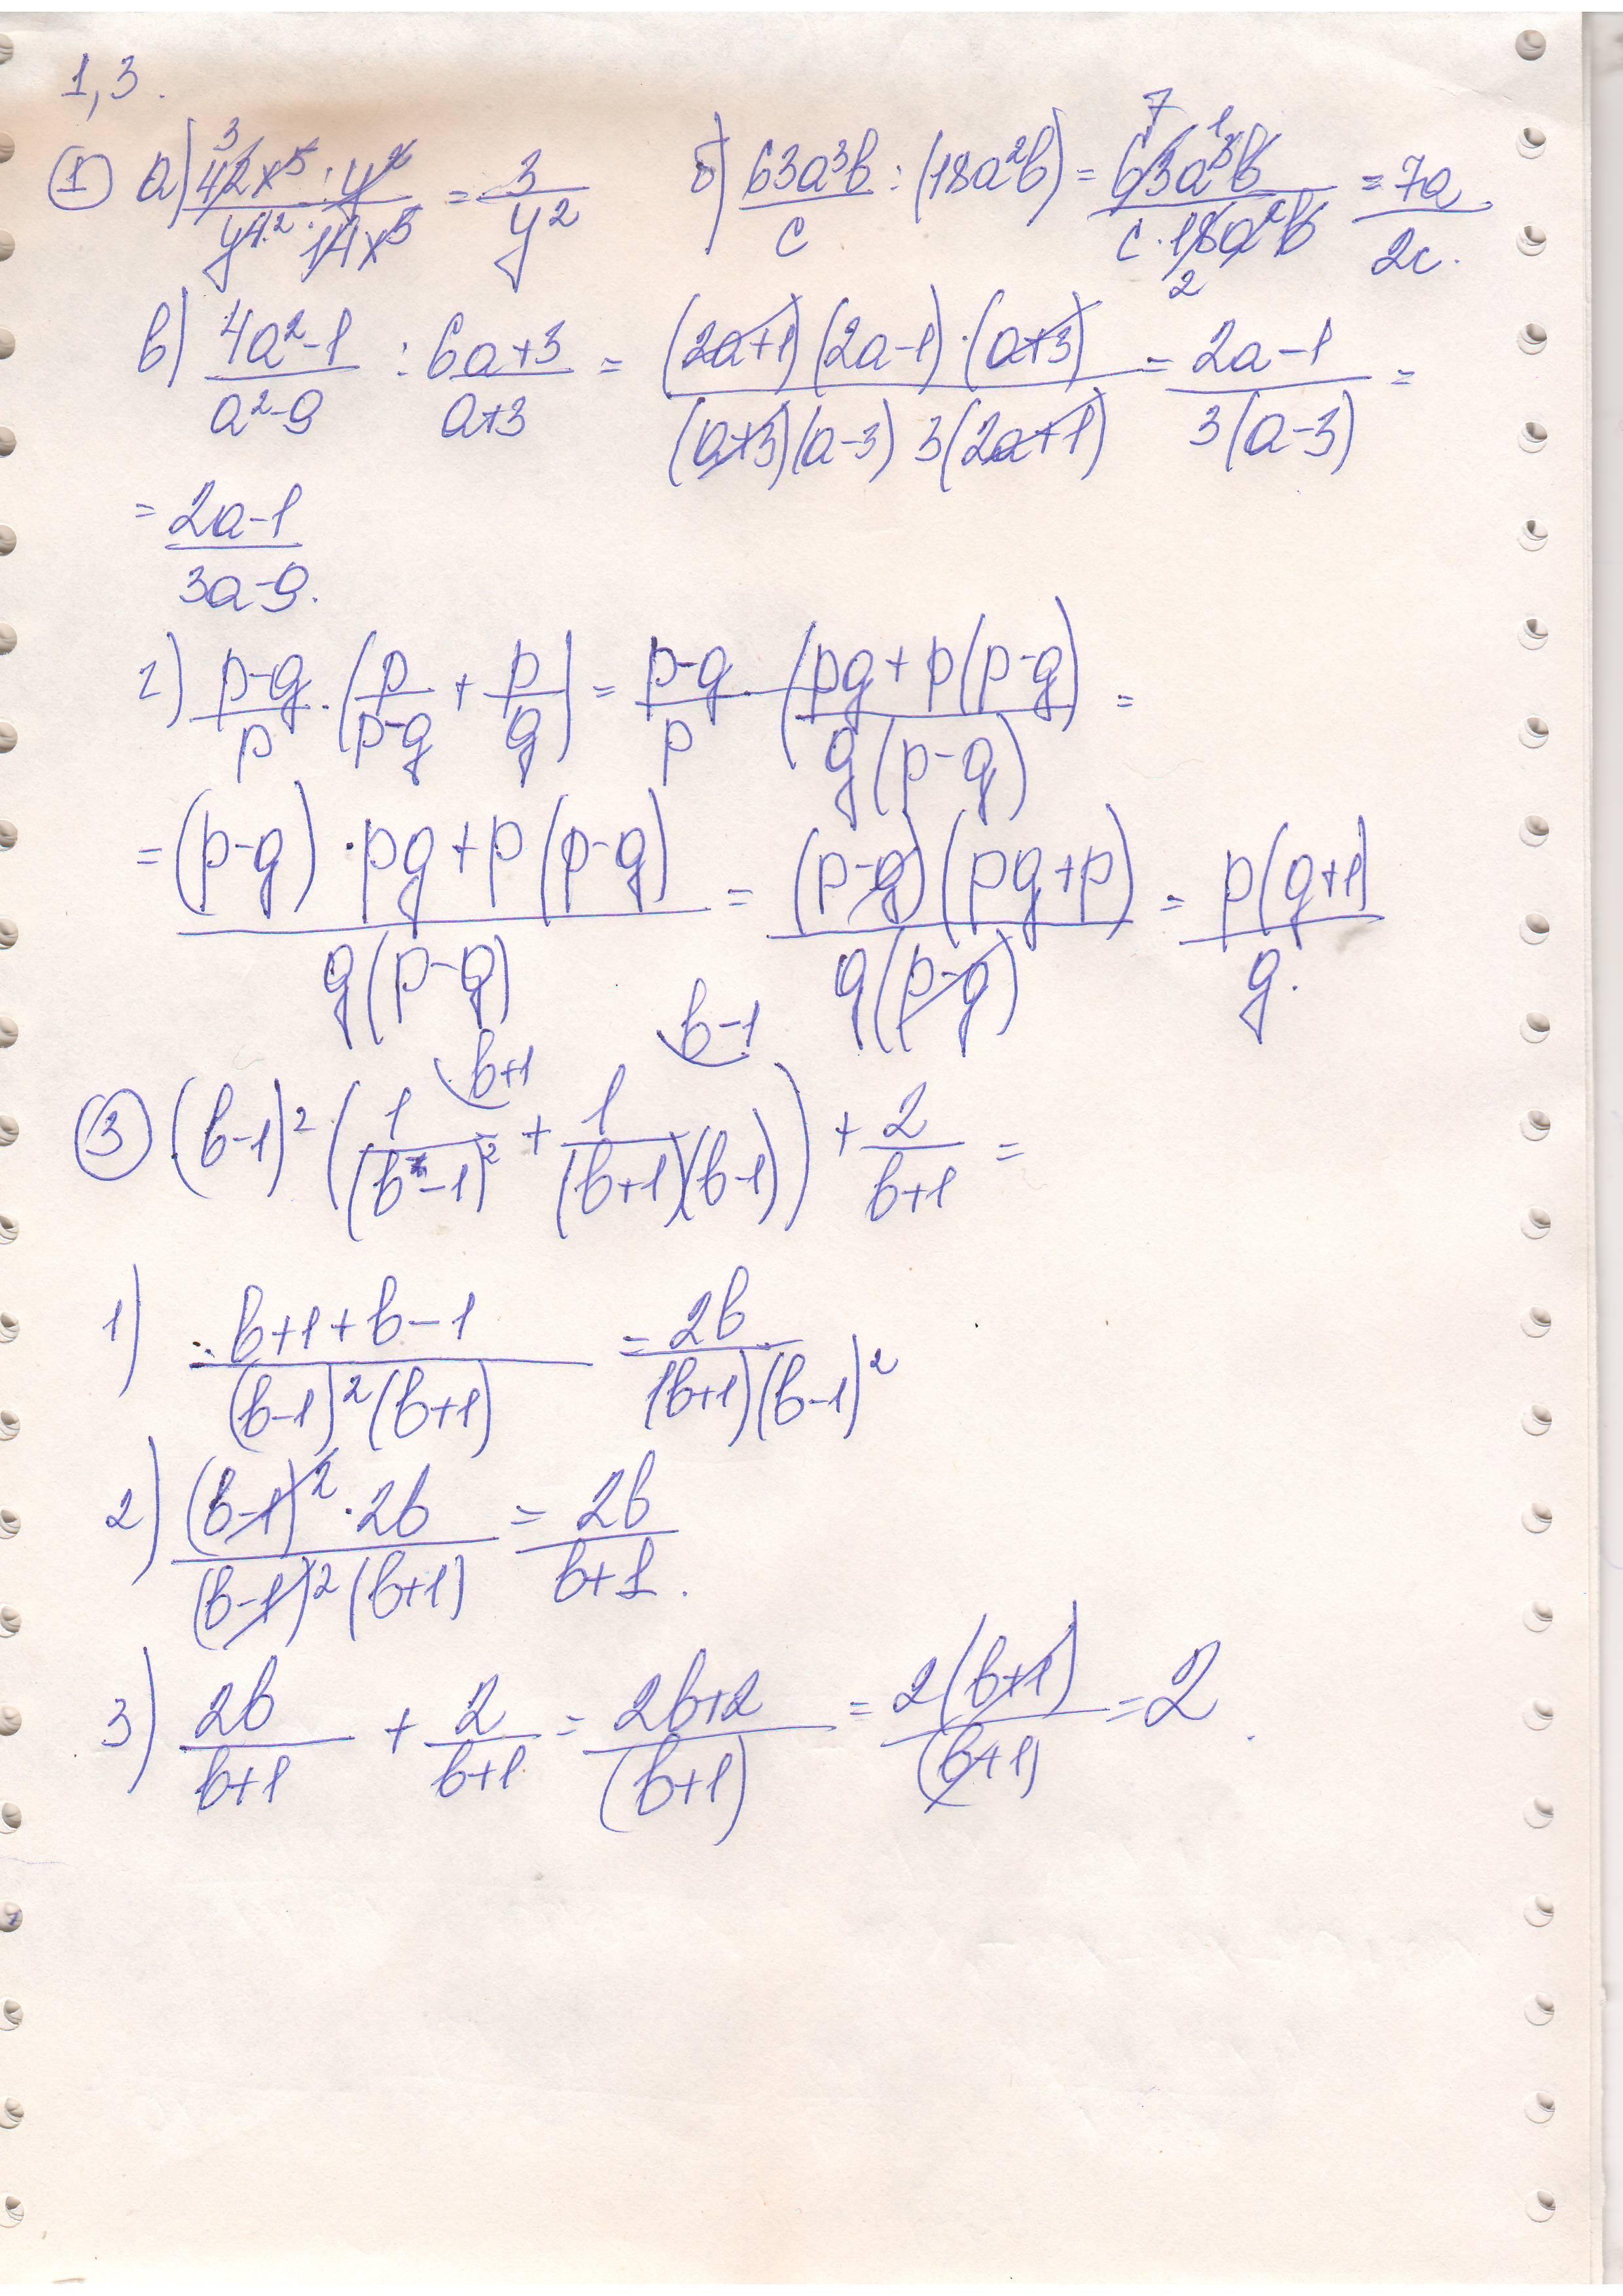 1,3.
① а) 42x⁵ · y² / y⁴ · 14x⁵ = 3 / y² б) 63a³b / c : (18a²b) = 63a³b / c · 18a²b = 7a / 2c.
в) 4a²-1 / a²-9 : 6a+3 / a+3 = (2a+1)(2a-1)·(a+3) / (a+3)(a-3) 3(2a+1) = 2a-1 / 3(a-3) =
= 2a-1 / 3a-9.
г) p-q / p · (p / p-q + p / q) = p-q / p · (pq+p(p-q) / q(p-q)) =
= (p-q) · pq+p(p-q) / q(p-q) = (p-q)(pq+p) / q(p-q) = p(q+1) / q.
b+1 b-1
③ (b-1)² (1 / (b-1)² + 1 / (b+1)(b-1)) + 2 / b+1 =
1) b+1+b-1 / (b-1)²(b+1) = 2b / (b+1)(b-1)²
2) (b-1)² · 2b / (b-1)²(b+1) = 2b / b+1.
3) 2b / b+1 + 2 / b+1 = 2b+2 / (b+1) = 2(b+1) / (b+1) = 2.